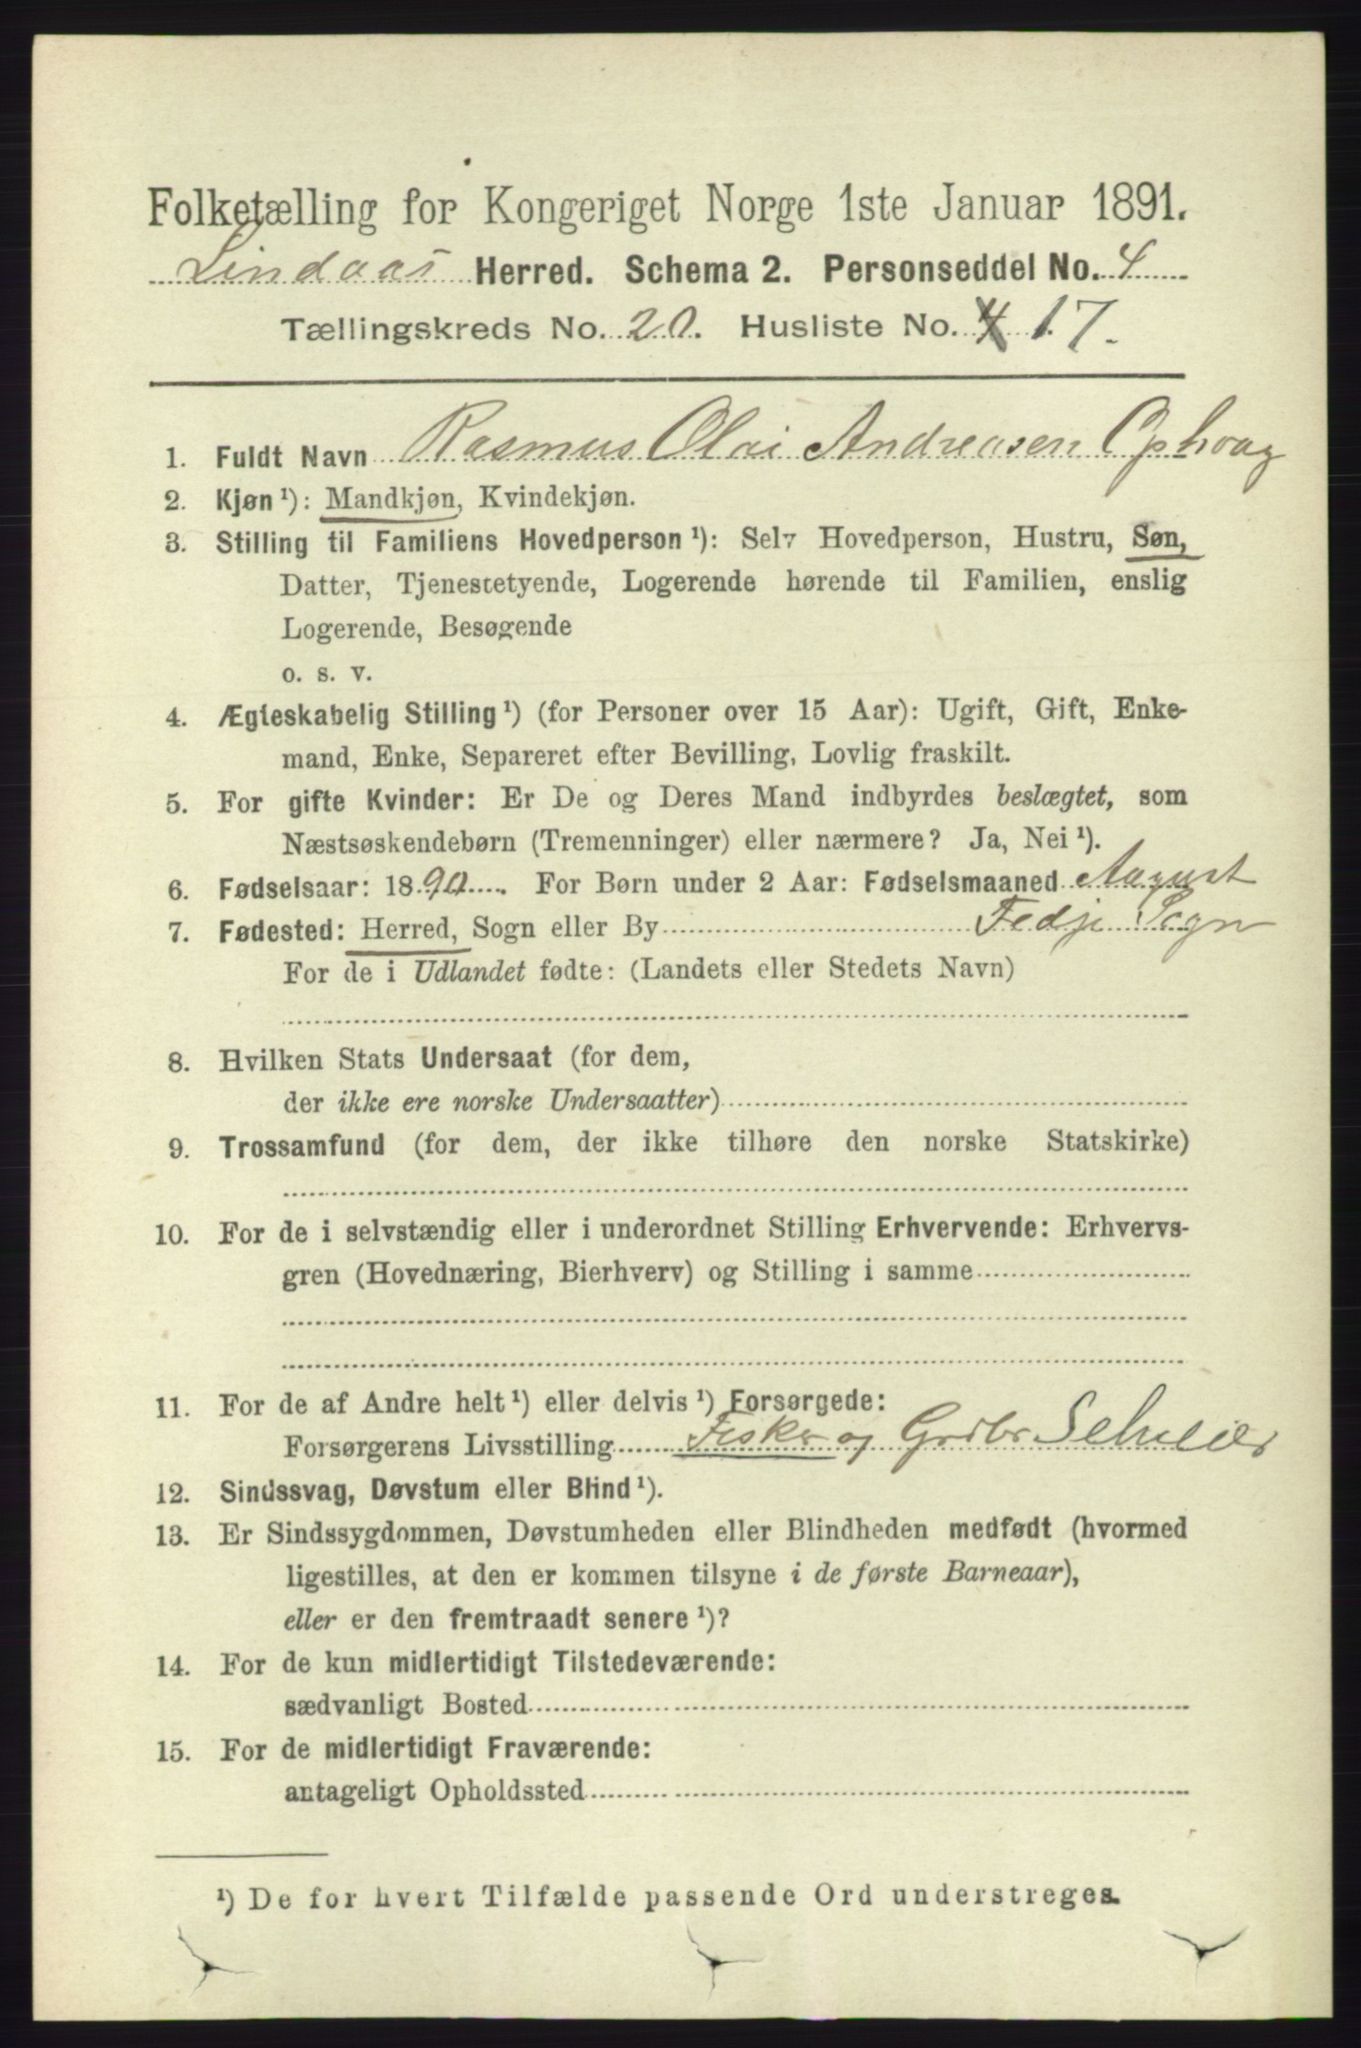 Folketælling for Kongeriget Norge 1ste Januar 1891.
Lindaas Herred. Schema 2. Personseddel No. 4
Tællingskreds No. 20. Husliste No. 4 17.
1. Fuldt Navn Rasmus Olai Andreasen Ophoug
2. Kjøn ¹): Mandkjøn, Kvindekjøn.
3. Stilling til Familiens Hovedperson ¹): Selv Hovedperson, Hustru, Søn,
Datter, Tjenestetyende, Logerende hørende til Familien, enslig
Logerende, Besøgende
o. s. v.
4. Ægteskabelig Stilling ¹) (for Personer over 15 Aar): Ugift, Gift, Enke-
mand, Enke, Separeret efter Bevilling, Lovlig fraskilt.
5. For gifte Kvinder: Er De og Deres Mand indbyrdes beslægtet, som
Næstsøskendebørn (Tremenninger) eller nærmere? Ja, Nei ¹).
6. Fødselsaar: 1890. For Børn under 2 Aar: Fødselsmaaned August
7. Fødested: Herred, Sogn eller By Fedje Sogn
For de i Udlandet fødte: (Landets eller Stedets Navn)
8. Hvilken Stats Undersaat (for dem,
der ikke ere norske Undersaatter)
9. Trossamfund (for dem, der ikke tilhøre den norske Statskirke)
10. For de i selvstændig eller i underordnet Stilling Erhvervende: Erhvervs-
gren (Hovednæring, Bierhverv) og Stilling i samme
11. For de af Andre helt ¹) eller delvis ¹) Forsørgede:
Forsørgerens Livsstilling Fisker og Grdbr Selveier
12. Sindssvag, Døvstum eller Blind ¹).
13. Er Sindssygdommen, Døvstumheden eller Blindheden medfødt (hvormed
ligestilles, at den er kommen tilsyne i de første Barneaar),
eller er den fremtraadt senere ¹)?
14. For de kun midlertidigt Tilstedeværende:
sædvanligt Bosted
15. For de midlertidigt Fraværende:
antageligt Opholdssted
¹) De for hvert Tilfælde passende Ord understreges.